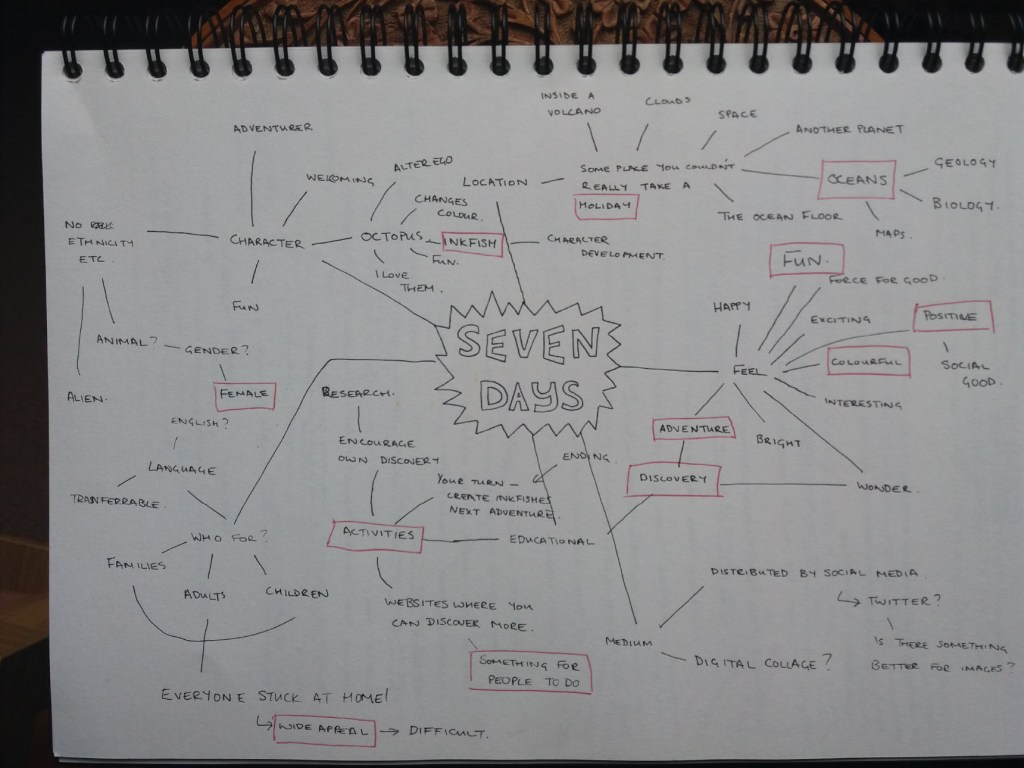 ADVENTURER
WELCOMING
ALTER EGO
CHANGES
COLOUR.
NO
ETHNICITY
ETC.
CHARACTER
OCTOPUS
INKFISH
FUN.
I LOVE
THEM.
FUN
ANIMAL?
GENDER?
FEMALE
ALIEN.
LOCATION
SOME PLACE YOU COULDN'T
REALLY TAKE A
HOLIDAY
INSIDE A
VOLCANO
CLOUDS
SPACE
ANOTHER PLANET
OCEANS
GEOLOGY
BIOLOGY.
MAPS
THE OCEAN FLOOR
CHARACTER
DEVELOPMENT.
SEVEN
DAYS
FEEL
HAPPY
FUN.
FORCE FOR GOOD.
EXCITING
POSITIVE
SOCIAL
GOOD.
COLOURFUL
INTERESTING
WONDER.
BRIGHT
ADVENTURE
DISCOVERY
RESEARCH.
ENCOURAGE
OWN DISCOVERY
ENDING.
YOUR TURN –
CREATE INKFISHES
NEXT ADVENTURE.
ACTIVITIES
EDUCATIONAL
WEBSITES WHERE YOU
CAN DISCOVER MORE.
SOMETHING FOR
PEOPLE TO DO
ENGLISH?
LANGUAGE
TRANFERRABLE.
WHO FOR?
FAMILIES
ADULTS
CHILDREN
EVERYONE STUCK AT HOME!
WIDE APPEAL
DIFFICULT.
MEDIUM
DISTRIBUTED BY SOCIAL MEDIA.
TWITTER?
IS THERE SOMETHING
BETTER FOR IMAGES?
DIGITAL COLLAGE?